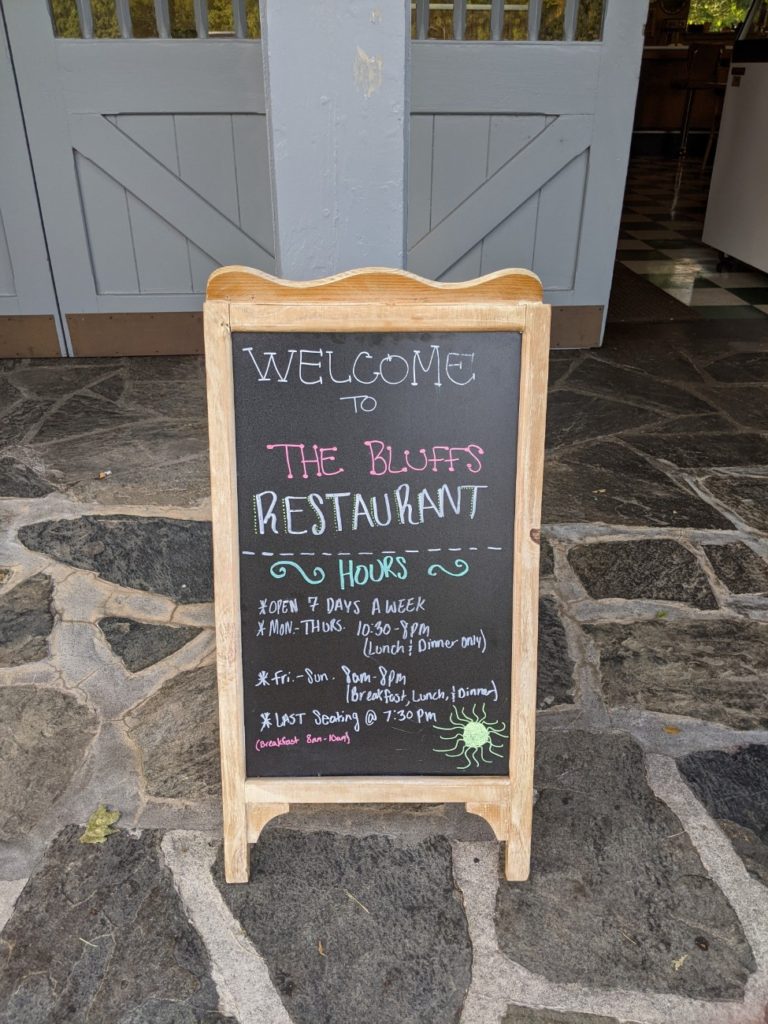 WELCOME
TO
THE BLUFFS
RESTAURANT
HOURS
* OPEN 7 DAYS A WEEK
* MON.-THURS. 10:30-8pm
(Lunch & Dinner only)
* Fri.-Sun. 8am-8pm
(Breakfast, Lunch, & Dinner)
* LAST Seating @ 7:30pm
(Breakfast 8am-10am)